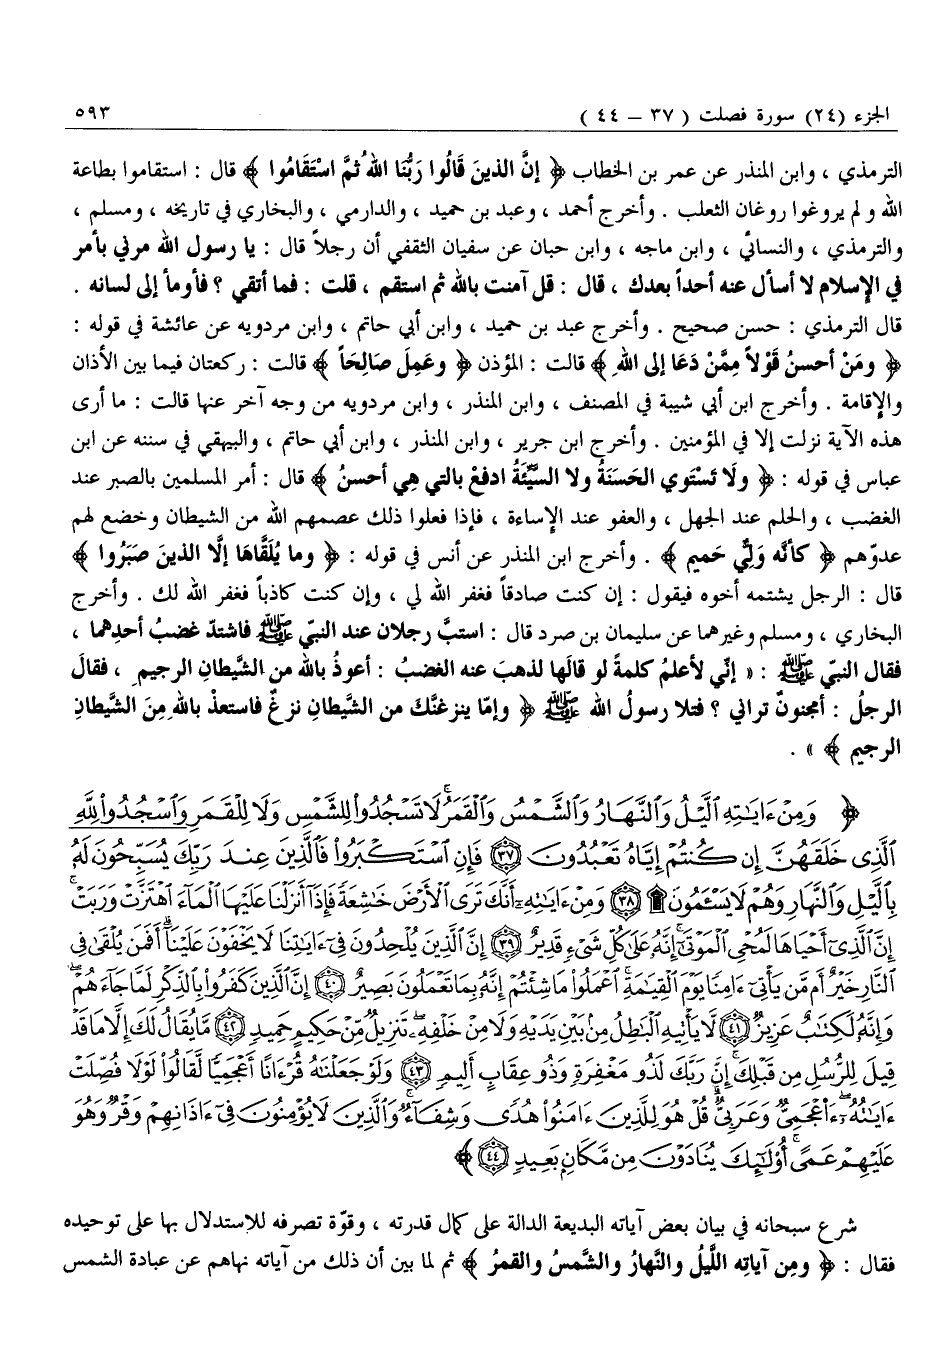 الجزء (٢٤) سورة فصلت ( ٣٧ – ٤٤ ) ٥٩٣
الترمذي ، وابن المنذر عن عمر بن الخطاب ﴿ إنَّ الذينَ قَالُوا رَبُّنَا اللهُ ثمَّ اسْتَقَامُوا ﴾ قال : استقاموا بطاعة
الله و لم يروغوا روغان الثعلب . وأخرج أحمد ، وعبد بن حميد ، والدارمي ، والبخاري في تاريخه ، ومسلم ،
والترمذي ، والنسائي ، وابن ماجه ، وابن حبان عن سفيان الثقفي أن رجلاً قال : يا رسول الله مرني بأمر
في الإسلام لا أسأل عنه أحداً بعدك ، قال : قل آمنت بالله ثم استقم ، قلت : فما أتقي ؟ فأومأ إلى لسانه .
قال الترمذي : حسن صحيح . وأخرج عبد بن حميد ، وابن أبي حاتم ، وابن مردويه عن عائشة في قوله :
﴿ ومَنْ أحسنُ قَوْلاً مِمَّنْ دَعَا إلى اللهِ ﴾ قالت : المؤذن ﴿ وعَمِلَ صَالِحَاً ﴾ قالت : ركعتان فيما بين الأذان
والإقامة . وأخرج ابن أبي شيبة في المصنف ، وابن المنذر ، وابن مردويه من وجه آخر عنها قالت : ما أرى
هذه الآية نزلت إلا في المؤمنين . وأخرج ابن جرير ، وابن المنذر ، وابن أبي حاتم ، والبيهقي في سننه عن ابن
عباس في قوله : ﴿ ولَا تَسْتَوي الحَسَنَةُ ولا السيِّئَةُ ادفعْ بالتي هِي أحسنُ ﴾ قال : أمر المسلمين بالصبر عند
الغضب ، والحلم عند الجهل ، والعفو عند الإساءة ، فإذا فعلوا ذلك عصمهم الله من الشيطان وخضع لهم
عدوّهم ﴿ كأنَّه وَلِيٌّ حَميم ﴾ . وأخرج ابن المنذر عن أنس في قوله : ﴿ وما يُلَقَّاهَا إلَّا الذينَ صَبَرُوا ﴾
قال : الرجل يشتمه أخوه فيقول : إن كنت صادقاً فغفر الله لي ، وإن كنت كاذباً فغفر الله لك . وأخرج
البخاري ، ومسلم وغيرهما عن سليمان بن صرد قال : استبَّ رجلان عند النبيّ ﷺ فاشتدّ غضبُ أحدِهما ،
فقال النبيّ ﷺ : « إنّي لأعلمُ كلمةً لو قالَها لذهبَ عنه الغضبُ : أعوذُ بالله من الشَّيطانِ الرجيمِ ، فقالَ
الرجلُ : أمجنونٌ تراني ؟ فتلا رسول الله ﷺ ﴿ وإمّا ينزغنَّكَ من الشَّيطانِ نزغٌ فاستعذْ باللهِ مِنَ الشَّيطانِ
الرجيمِ ﴾ » .
﴿ وَمِنْ ءَايَٰتِهِ ٱلَّيْلُ وَٱلنَّهَارُ وَٱلشَّمْسُ وَٱلْقَمَرُ ۚ لَا تَسْجُدُوا۟ لِلشَّمْسِ وَلَا لِلْقَمَرِ وَٱسْجُدُوا۟ لِلَّهِ
ٱلَّذِى خَلَقَهُنَّ إِن كُنتُمْ إِيَّاهُ تَعْبُدُونَ ﴿٣٧﴾ فَإِنِ ٱسْتَكْبَرُوا۟ فَٱلَّذِينَ عِندَ رَبِّكَ يُسَبِّحُونَ لَهُۥ
بِٱلَّيْلِ وَٱلنَّهَارِ وَهُمْ لَا يَسْـَٔمُونَ ۩ ﴿٣٨﴾ وَمِنْ ءَايَٰتِهِۦٓ أَنَّكَ تَرَى ٱلْأَرْضَ خَٰشِعَةً فَإِذَآ أَنزَلْنَا عَلَيْهَا ٱلْمَآءَ ٱهْتَزَّتْ وَرَبَتْ ۚ
إِنَّ ٱلَّذِىٓ أَحْيَاهَا لَمُحْىِ ٱلْمَوْتَىٰٓ ۚ إِنَّهُۥ عَلَىٰ كُلِّ شَىْءٍ قَدِيرٌ ﴿٣٩﴾ إِنَّ ٱلَّذِينَ يُلْحِدُونَ فِىٓ ءَايَٰتِنَا لَا يَخْفَوْنَ عَلَيْنَآ ۗ أَفَمَن يُلْقَىٰ فِى
ٱلنَّارِ خَيْرٌ أَم مَّن يَأْتِىٓ ءَامِنًا يَوْمَ ٱلْقِيَٰمَةِ ۚ ٱعْمَلُوا۟ مَا شِئْتُمْ إِنَّهُۥ بِمَا تَعْمَلُونَ بَصِيرٌ ﴿٤٠﴾ إِنَّ ٱلَّذِينَ كَفَرُوا۟ بِٱلذِّكْرِ لَمَّا جَآءَهُمْ ۖ
وَإِنَّهُۥ لَكِتَٰبٌ عَزِيزٌ ﴿٤١﴾ لَّا يَأْتِيهِ ٱلْبَٰطِلُ مِنۢ بَيْنِ يَدَيْهِ وَلَا مِنْ خَلْفِهِۦ ۖ تَنزِيلٌ مِّنْ حَكِيمٍ حَمِيدٍ ﴿٤٢﴾ مَّا يُقَالُ لَكَ إِلَّا مَا قَدْ
قِيلَ لِلرُّسُلِ مِن قَبْلِكَ ۚ إِنَّ رَبَّكَ لَذُو مَغْفِرَةٍ وَذُو عِقَابٍ أَلِيمٍ ﴿٤٣﴾ وَلَوْ جَعَلْنَٰهُ قُرْءَانًا أَعْجَمِيًّا لَّقَالُوا۟ لَوْلَا فُصِّلَتْ
ءَايَٰتُهُۥٓ ۖ ءَا۬عْجَمِىٌّ وَعَرَبِىٌّ ۗ قُلْ هُوَ لِلَّذِينَ ءَامَنُوا۟ هُدًى وَشِفَآءٌ ۖ وَٱلَّذِينَ لَا يُؤْمِنُونَ فِىٓ ءَاذَانِهِمْ وَقْرٌ وَهُوَ
عَلَيْهِمْ عَمًى ۚ أُو۟لَٰٓئِكَ يُنَادَوْنَ مِن مَّكَانٍۭ بَعِيدٍ ﴿٤٤﴾ ﴾
شرع سبحانه في بيان بعض آياته البديعة الدالة على كمال قدرته ، وقوّة تصرفه للاستدلال بها على توحيده
فقال : ﴿ ومِن آياتِه اللَّيلُ والنَّهارُ والشَّمسُ والقمرُ ﴾ ثم لما بين أن ذلك من آياته نهاهم عن عبادة الشمس